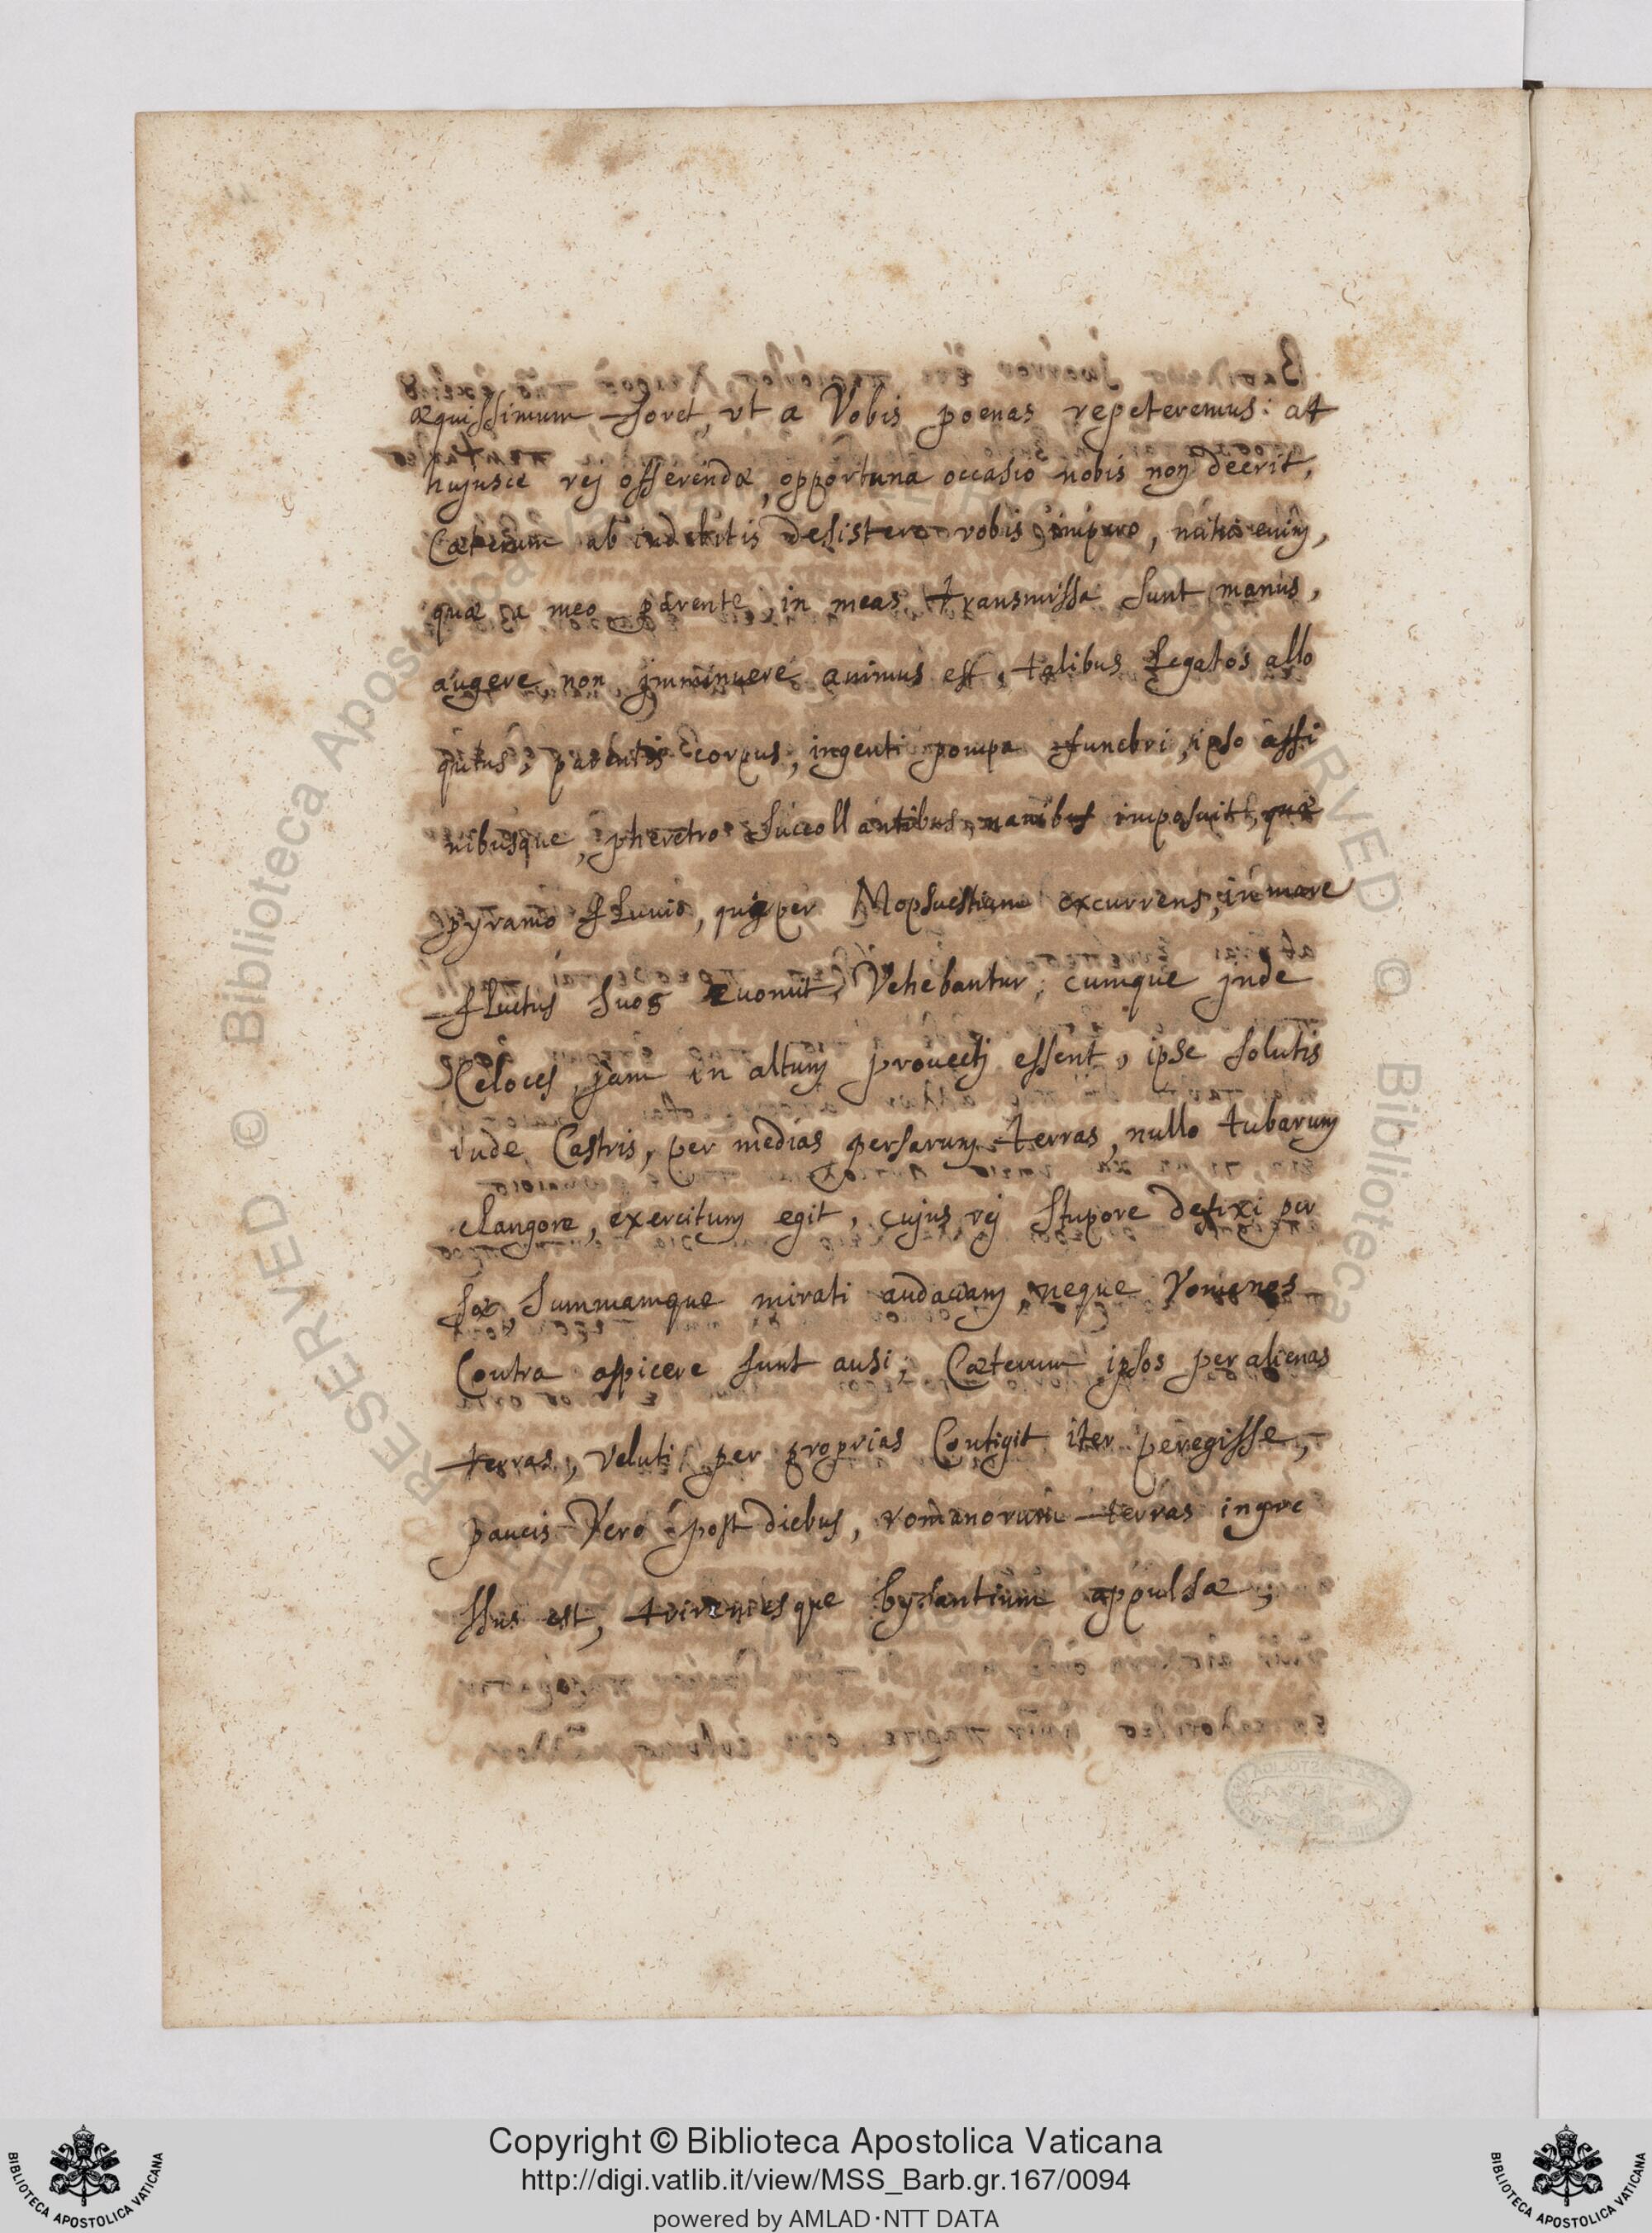 æquissimum foret, ut a Vobis poenas repeteremus: at
hujusce rej offerendæ, opportuna occasio nobis non deerit,
Cæterum ab indebitis desistere vobis impero, nam enim,
quæ a meo parente, in meas transmissa sunt manus,
augere, non imminuere animus est, talibus Legatos allo
qutus, parentis corpus, ingenti pompa funebri, ipso affi
nibusque, pheretro succollantibus, manibus imposuit, quæ
pyramo fluuio, qui per Mopsuestiam excurrens, in mare
fluctus suos euomit, Vehebantur, cumque jnde
Celoces, jam in altum provecti essent, ipse solutis
inde Castris, per medias persarum terras, nullo tubarum
clangore, exercitum egit, cujus rej stupore defixi per
sæ, summamque mirati audaciam, neque Vomenes
Contra aspicere sunt ausi; Cæterum ipsos per alienas
terras, veluti per proprias Contigit iter peregisse,
paucis Vero post diebus, romanorum terras ingre
ssus est, triremesque byzantium appulsæ,
Copyright © Biblioteca Apostolica Vaticana
http://digi.vatlib.it/view/MSS_Barb.gr.167/0094
powered by AMLAD·NTT DATA
BIBLIOTECA APOSTOLICA VATICANA
BIBLIOTECA APOSTOLICA VATICANA